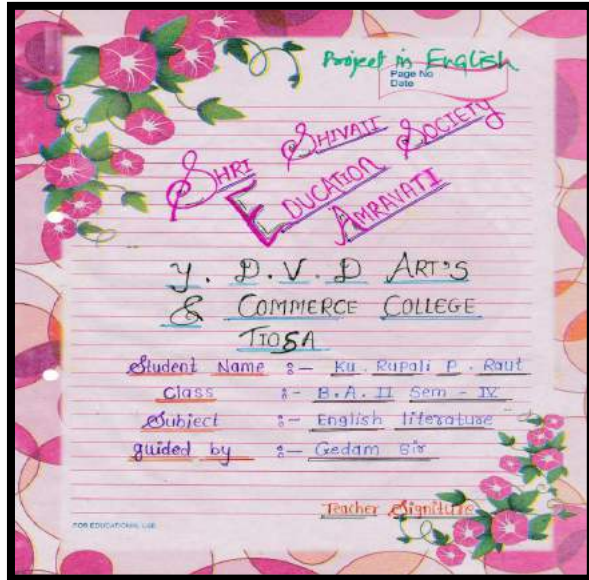 Project in English
Page No
Date
SHRI SHIVAJI SOCIETY
EDUCATION
AMRAVATI
Y. D. V. D ART'S
& COMMERCE COLLEGE
TIOSA
Student Name :- Ku. Rupali P. Raut
Class :- B.A. II Sem - IV
Subject :- English literature
guided by :- Gedam Sir
Teacher Signiture
FOR EDUCATIONAL USE